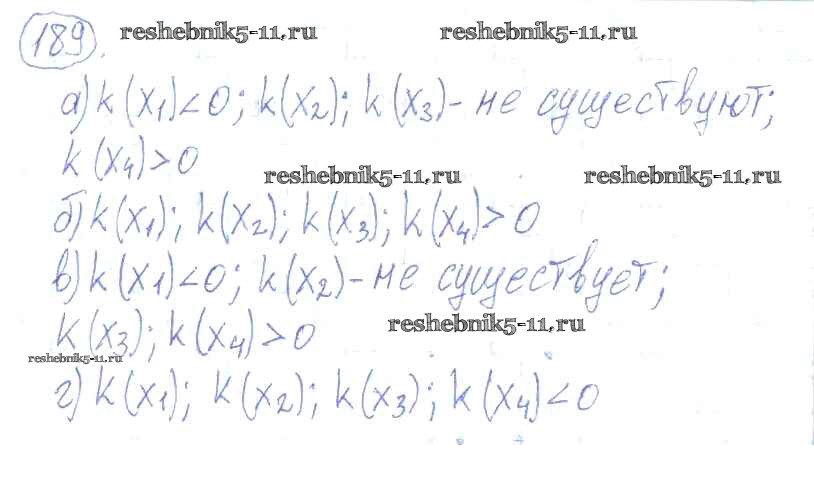 189. reshebnik5-11.ru reshebnik5-11.ru
а) k(x₁)<0; k(x₂); k(x₃) - не существуют;
k(x₄)>0
reshebnik5-11.ru reshebnik5-11.ru
б) k(x₁); k(x₂); k(x₃); k(x₄)>0
в) k(x₁)<0; k(x₂) - не существует;
k(x₃); k(x₄)>0 reshebnik5-11.ru
reshebnik5-11.ru
г) k(x₁); k(x₂); k(x₃); k(x₄)<0